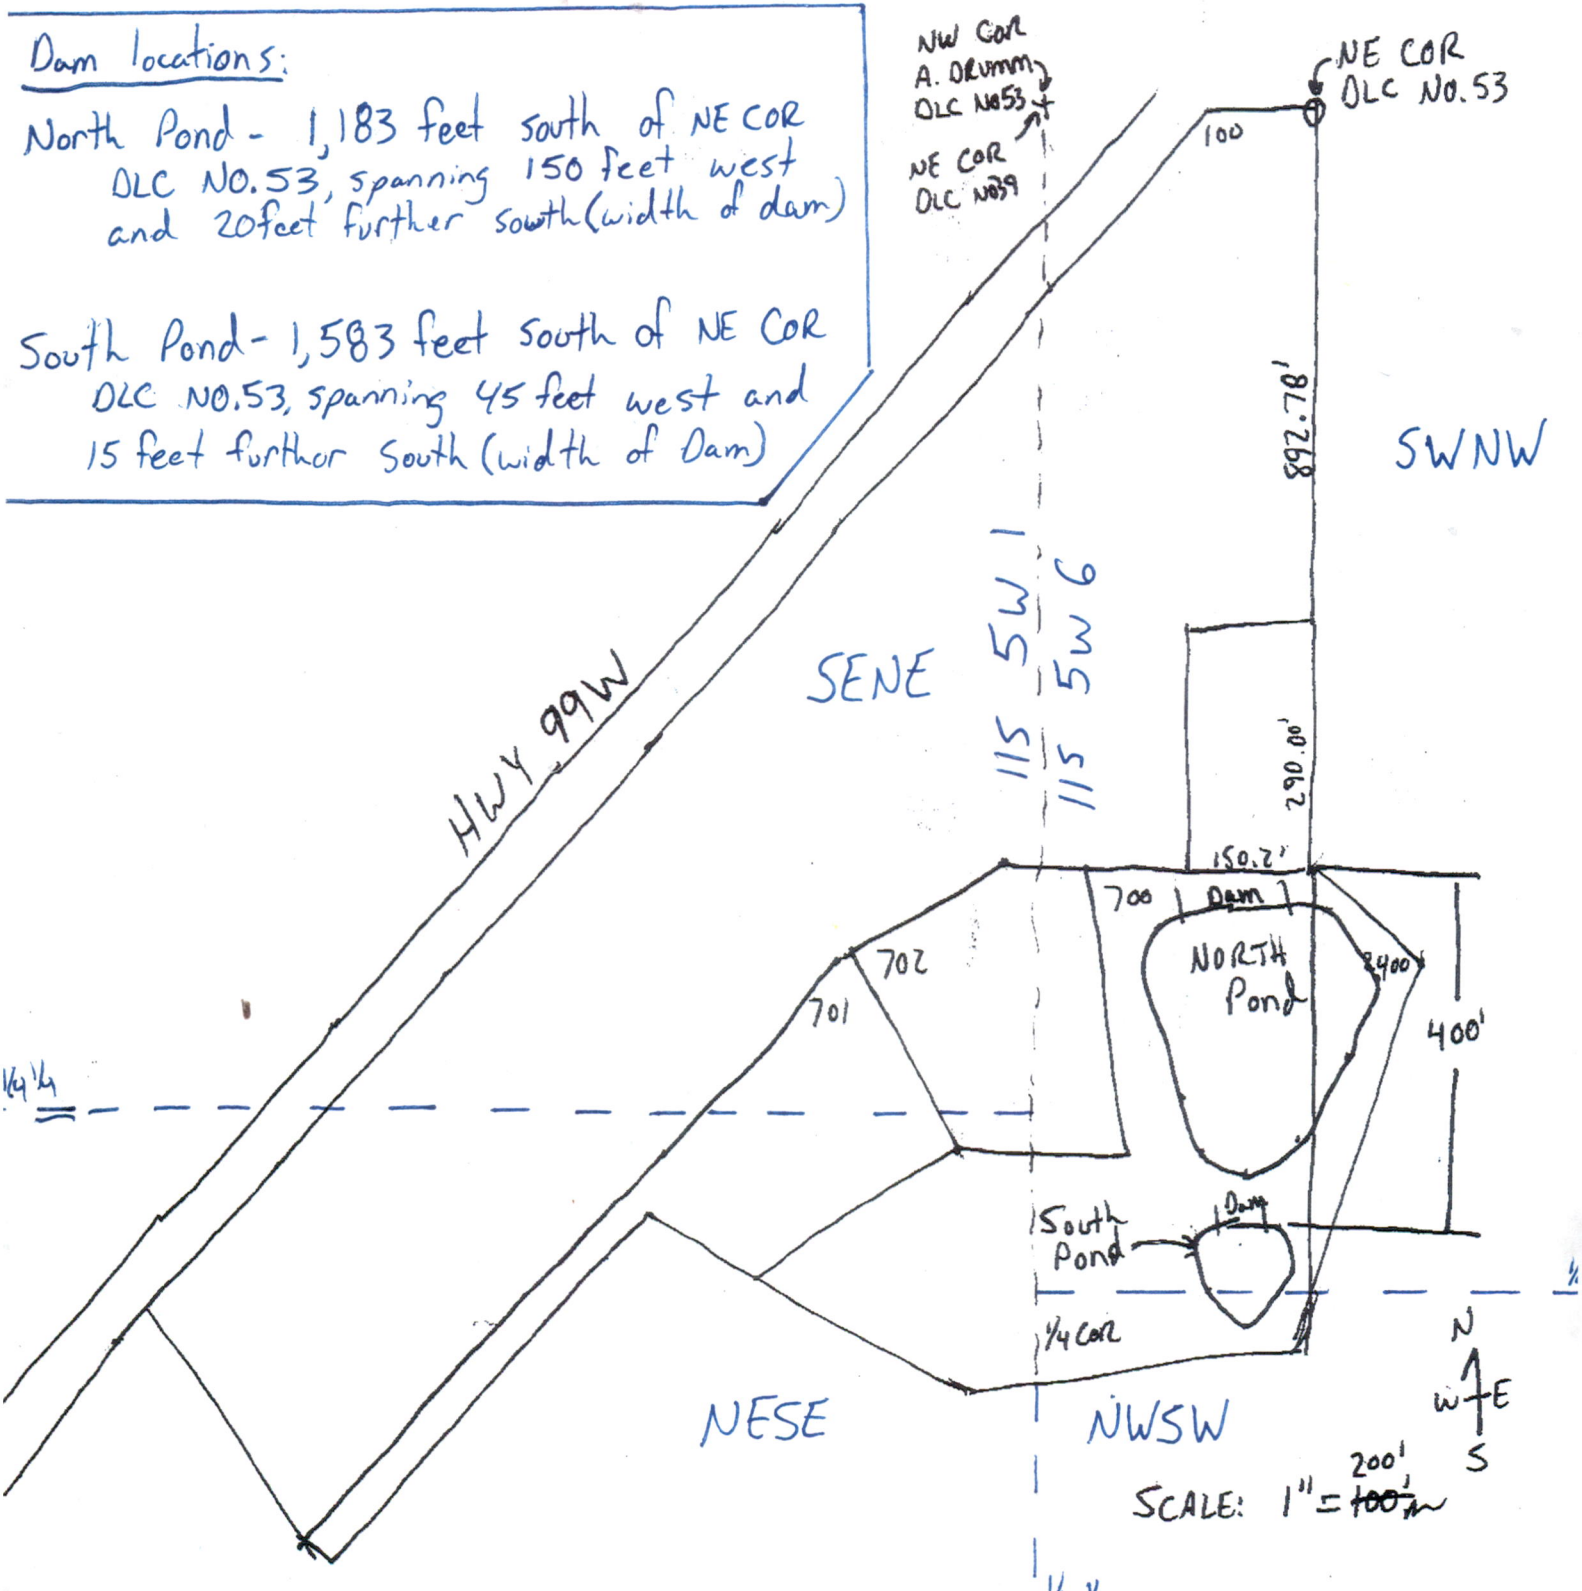 Dam locations:
North Pond - 1,183 feet south of NE COR
DLC NO.53, spanning 150 feet west
and 20feet further south (width of dam)
South Pond - 1,583 feet south of NE COR
DLC NO.53, spanning 45 feet west and
15 feet further South (width of Dam)
NW COR
A. DRUMM
DLC No53
NE COR
DLC No39
NE COR
DLC NO.53
100
892.78'
SWNW
11S 5W 1
11S 5W 6
SENE
HWY 99W
290.00'
150.2'
700
Dam
702
701
NORTH
Pond
2400
400'
1/4 1/4
Dam
South
Pond
1/4 COR
NESE
NWSW
N
W E
S
200'
SCALE: 1" = 100'